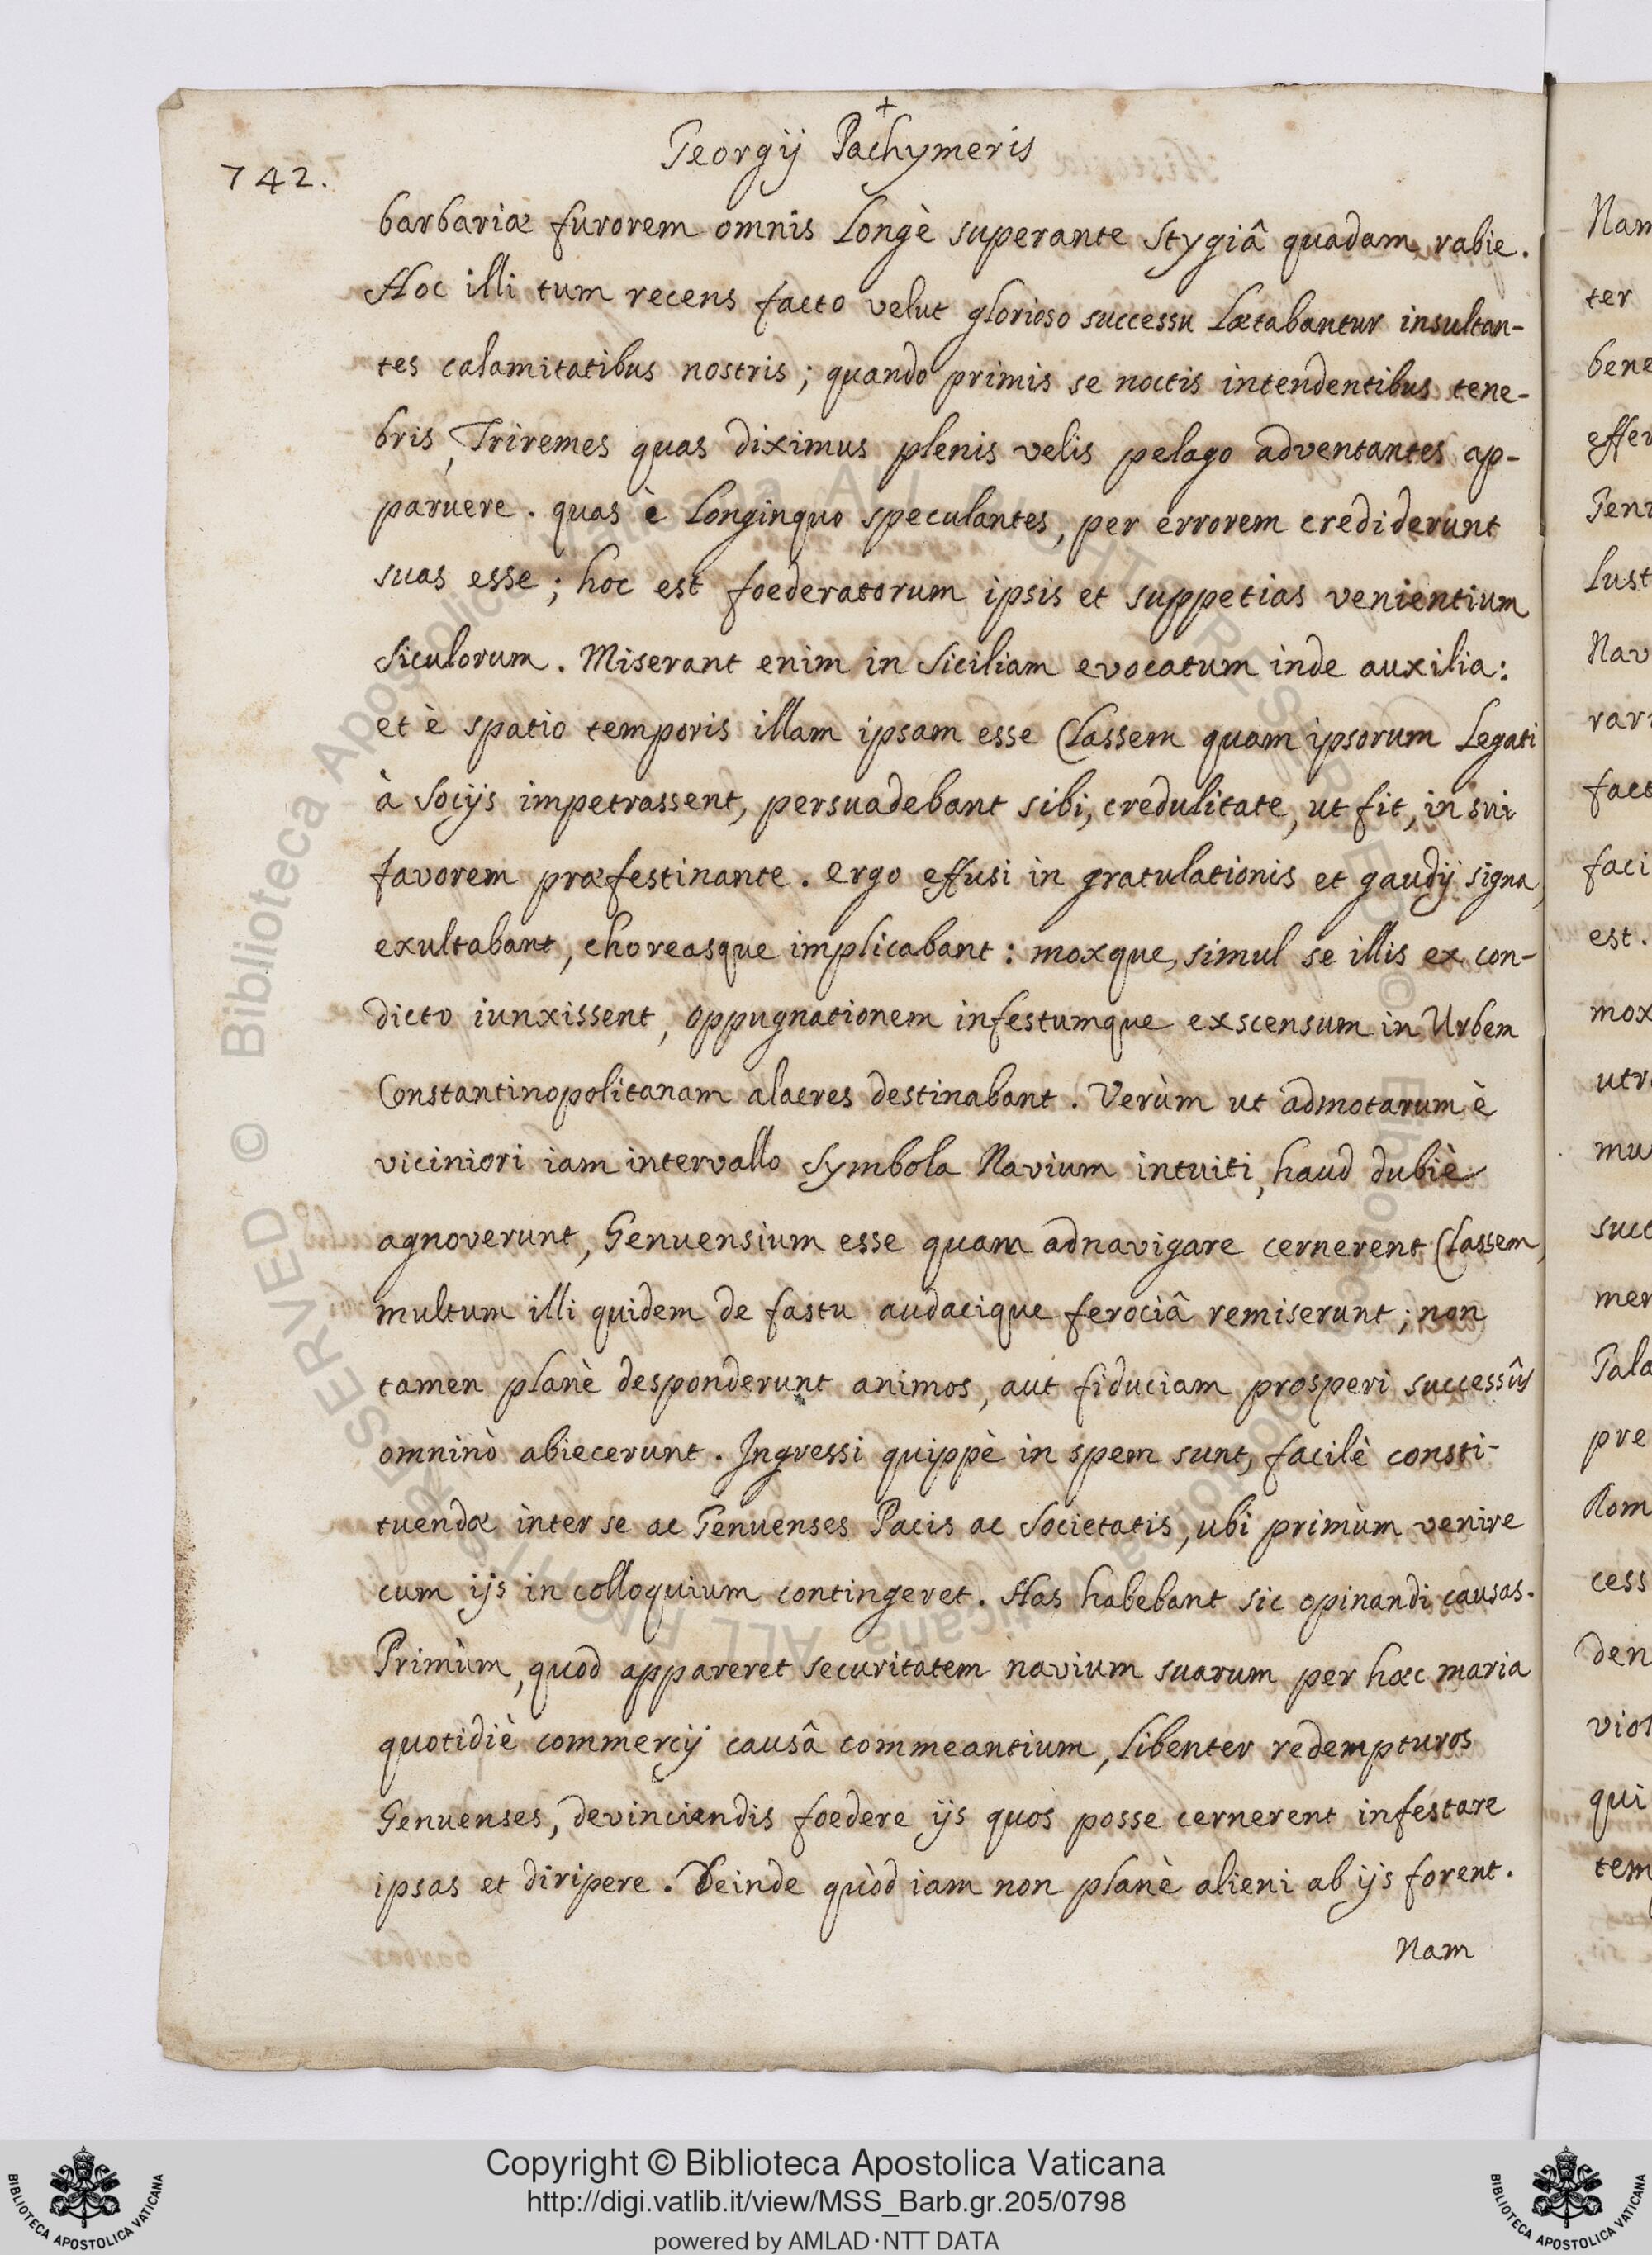 742.
Georgij Pachymeris
barbariæ furorem omnis longè superante Stygiâ quadam rabie.
Hoc illi tum recens facto velut glorioso successu lætabantur insultan-
tes calamitatibus nostris; quando primis se noctis intendentibus tene-
bris, Triremes quas diximus plenis velis pelago adventantes ap-
paruere. quas è longinquo speculantes, per errorem crediderunt
suas esse; hoc est foederatorum ipsis et suppetias venientium
Siculorum. Miserant enim in Siciliam evocatum inde auxilia:
et è spatio temporis illam ipsam esse Classem quam ipsorum Legati
à Socijs impetrassent, persuadebant sibi, credulitate, ut fit, in sui
favorem præfestinante. ergo effusi in gratulationis et gaudij signa,
exultabant, choreasque implicabant: moxque, simul se illis ex con-
dicto iunxissent, oppugnationem infestumque exscensum in Urbem
Constantinopolitanam alacres destinabant. Verùm ut admotarum è
viciniori iam intervallo Symbola Navium intuiti, haud dubiè
agnoverunt, Genuensium esse quam adnavigare cernerent Classem,
multum illi quidem de fastu audacique ferociâ remiserunt; non
tamen planè desponderunt animos, aut fiduciam prosperi successûs
omninò abiecerunt. Ingressi quippè in spem sunt, facilè consti-
tuendæ inter se ac Genuenses Pacis ac Societatis, ubi primùm venire
cum ijs in colloquium contingeret. Has habebant sic opinandi causas.
Primùm, quod appareret securitatem navium suarum per hæc maria
quotidiè commercij causâ commeantium, libenter redempturos
Genuenses, devinciendis foedere ijs quos posse cernerent infestare
ipsas et diripere. Deinde quòd iam non planè alieni ab ijs forent.
Nam
Nam
ter
bene
effer
Gen
lust
Nav
rar
fact
faci
est.
mox
utr
mu
succ
mer
Gala
pre
Rom
cess
den
viol
qui
tem
© Biblioteca Apostolica Vaticana ALL RIGHTS RESERVED
Copyright © Biblioteca Apostolica Vaticana
http://digi.vatlib.it/view/MSS_Barb.gr.205/0798
powered by AMLAD·NTT DATA
BIBLIOTECA APOSTOLICA VATICANA
BIBLIOTECA APOSTOLICA VATICANA